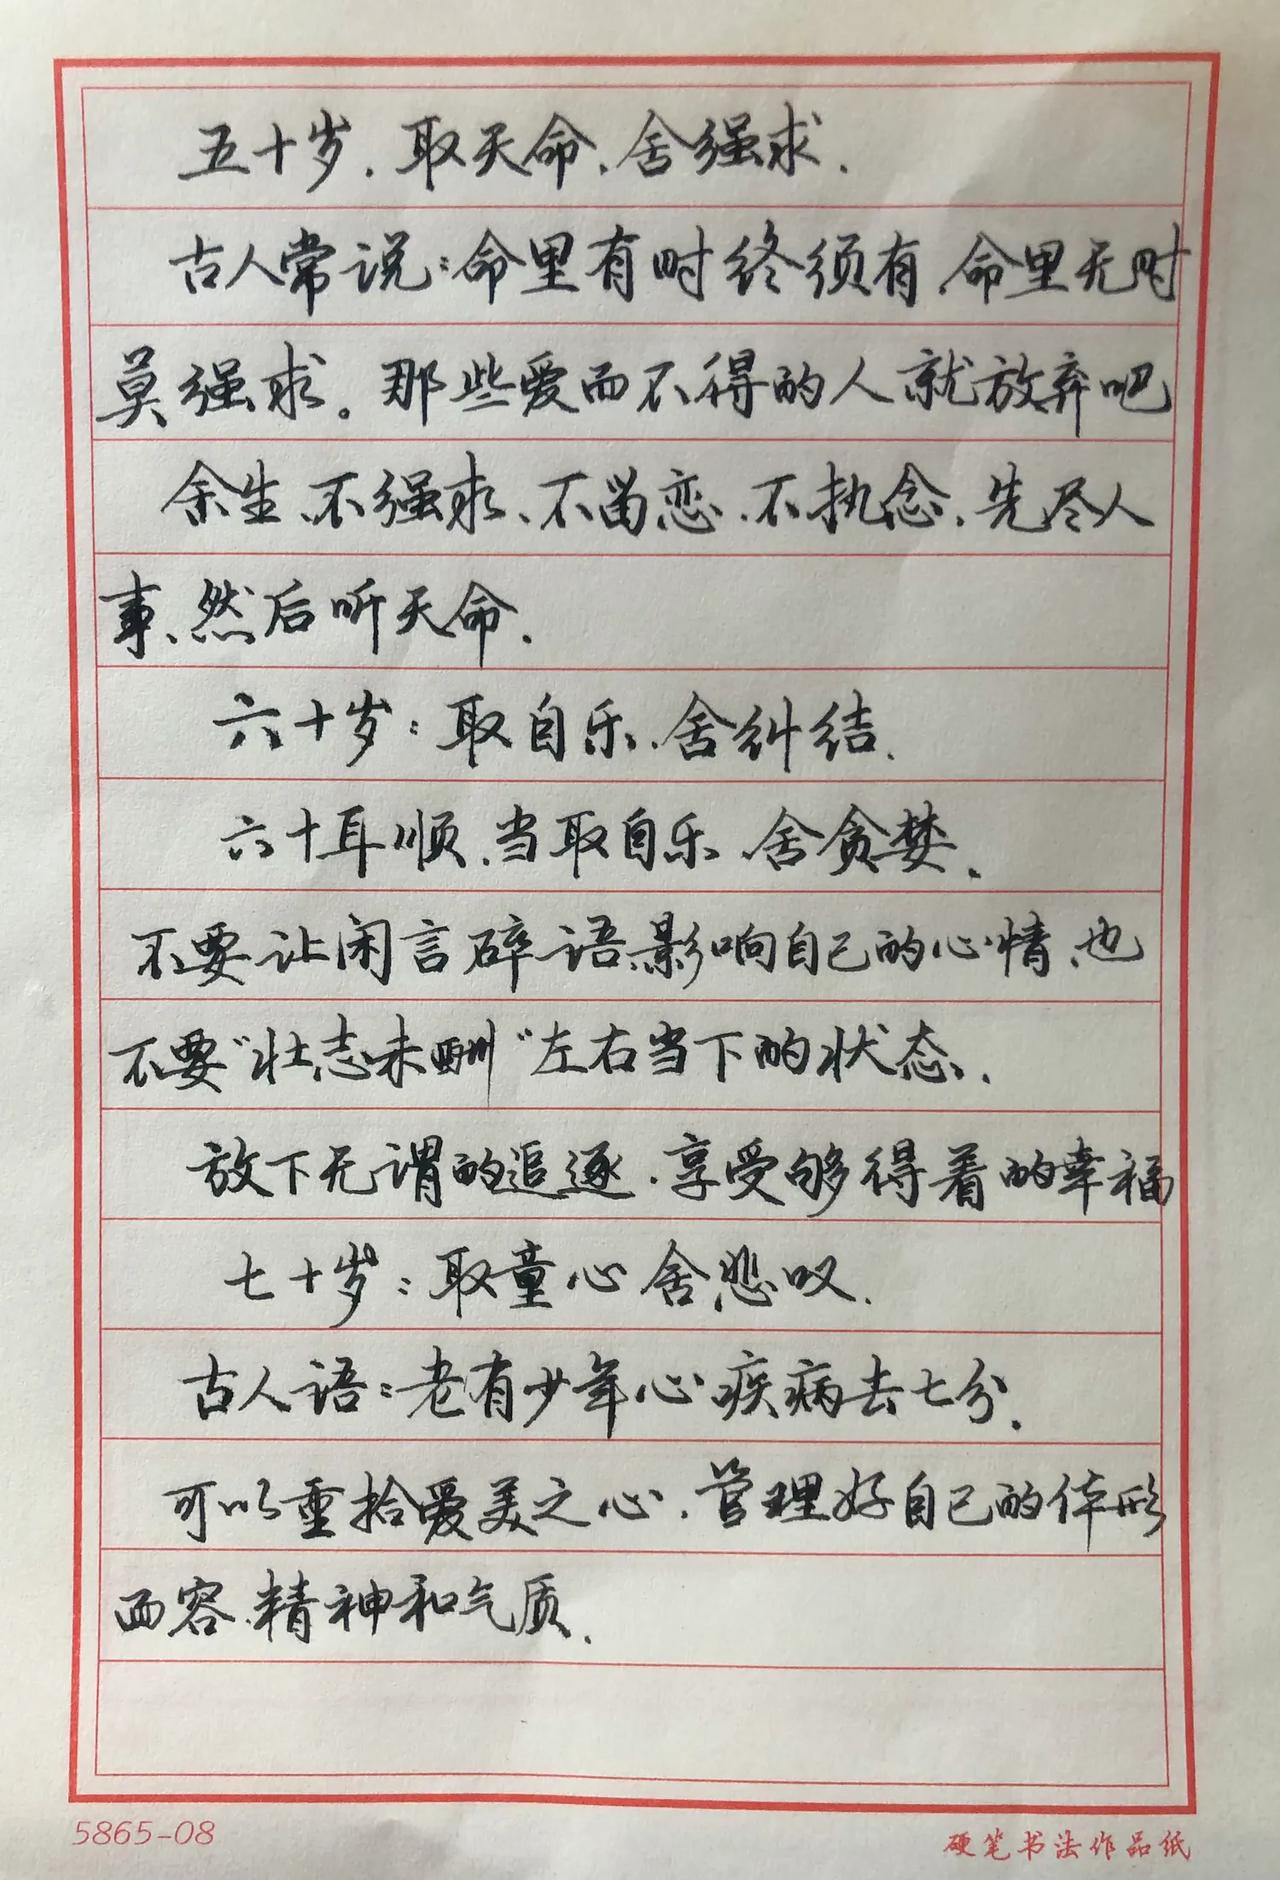 五十岁.取天命.舍强求.
古人常说:命里有时终须有.命里无时
莫强求。那些爱而不得的人就放弃吧
余生、不强求、不留恋.不执念.先尽人
事、然后听天命.
六十岁:取自乐.舍纠结.
六十耳顺.当取自乐.舍贪婪.
不要让闲言碎语影响自己的心情、也
不要"壮志未酬"左右当下的状态.
放下无谓的追逐.享受够得着的幸福
七十岁:取童心舍悲叹.
古人语:老有少年心疾病去七分.
可以重拾爱美之心.管理好自己的体形
面容.精神和气质.
5865-08
硬笔书法作品纸